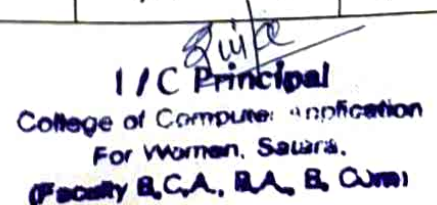 I / C Principal
College of Computer Application
For Women, Satara.
(Faculty B.C.A., B.A., B. Com)